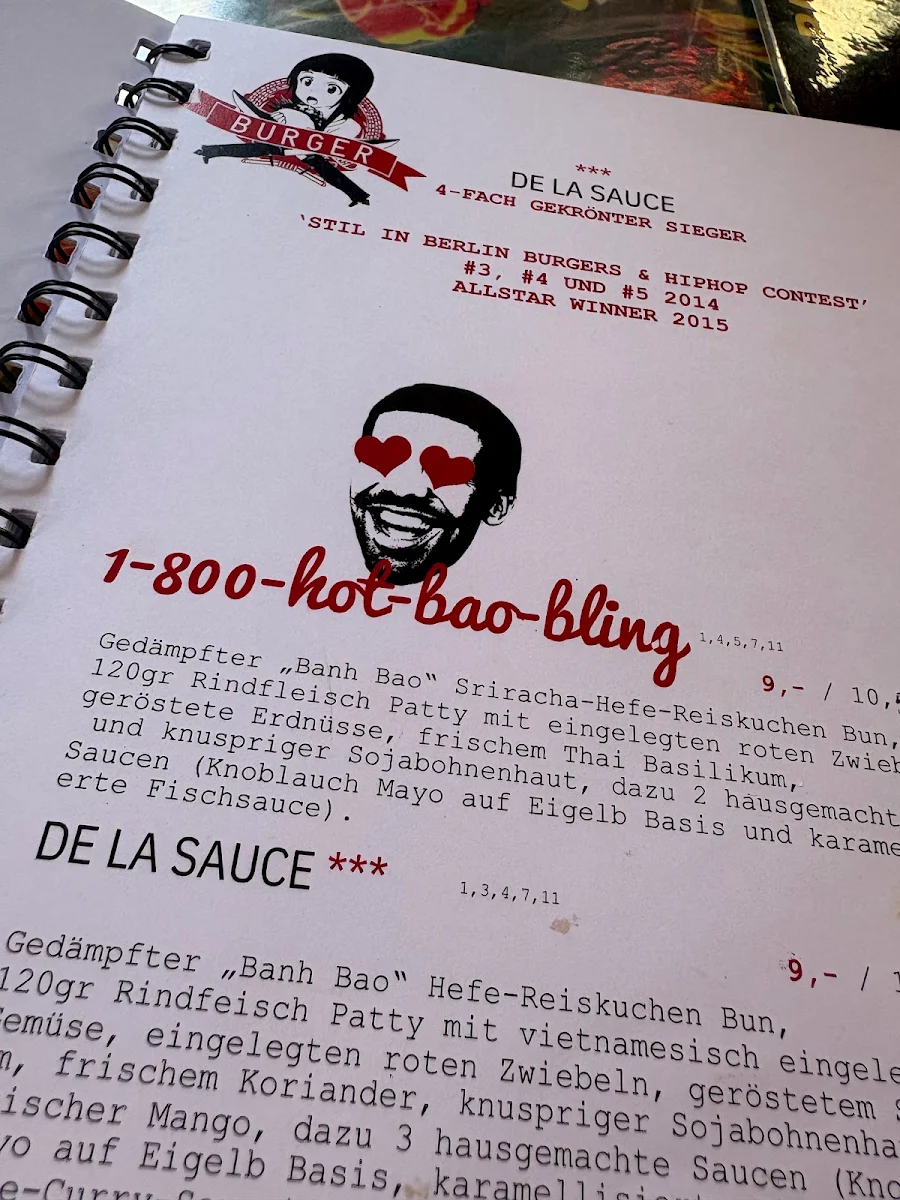 BURGER
***
DE LA SAUCE
4-FACH GEKRÖNTER SIEGER
'STIL IN BERLIN BURGERS & HIPHOP CONTEST'
#3, #4 UND #5 2014
ALLSTAR WINNER 2015
1-800-hot-bao-bling 1,4,5,7,11
9,- / 10,
Gedämpfter „Banh Bao“ Sriracha-Hefe-Reiskuchen Bun,
120gr Rindfleisch Patty mit eingelegten roten Zwieb
geröstete Erdnüsse, frischem Thai Basilikum,
und knuspriger Sojabohnenhaut, dazu 2 hausgemacht
Saucen (Knoblauch Mayo auf Eigelb Basis und karame
erte Fischsauce).
DE LA SAUCE *** 1,3,4,7,11
9,- / 1
Gedämpfter „Banh Bao“ Hefe-Reiskuchen Bun,
120gr Rindfeisch Patty mit vietnamesisch eingele
Gemüse, eingelegten roten Zwiebeln, geröstetem
m, frischem Koriander, knuspriger Sojabohnenha
ischer Mango, dazu 3 hausgemachte Saucen (Kno
yo auf Eigelb Basis, karamellisier
e-Curry-Sa